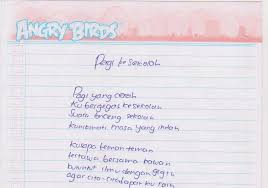 ANGRY BIRDS
Pagi ke Sekolah
Pagi yang cerah
Ku bergegas ke sekolah
Suara lonceng sekolah
masa yang indah
teman teman
tertawa bersama kawan
ilmu dengan gigih
agar cita-citapun ku raih